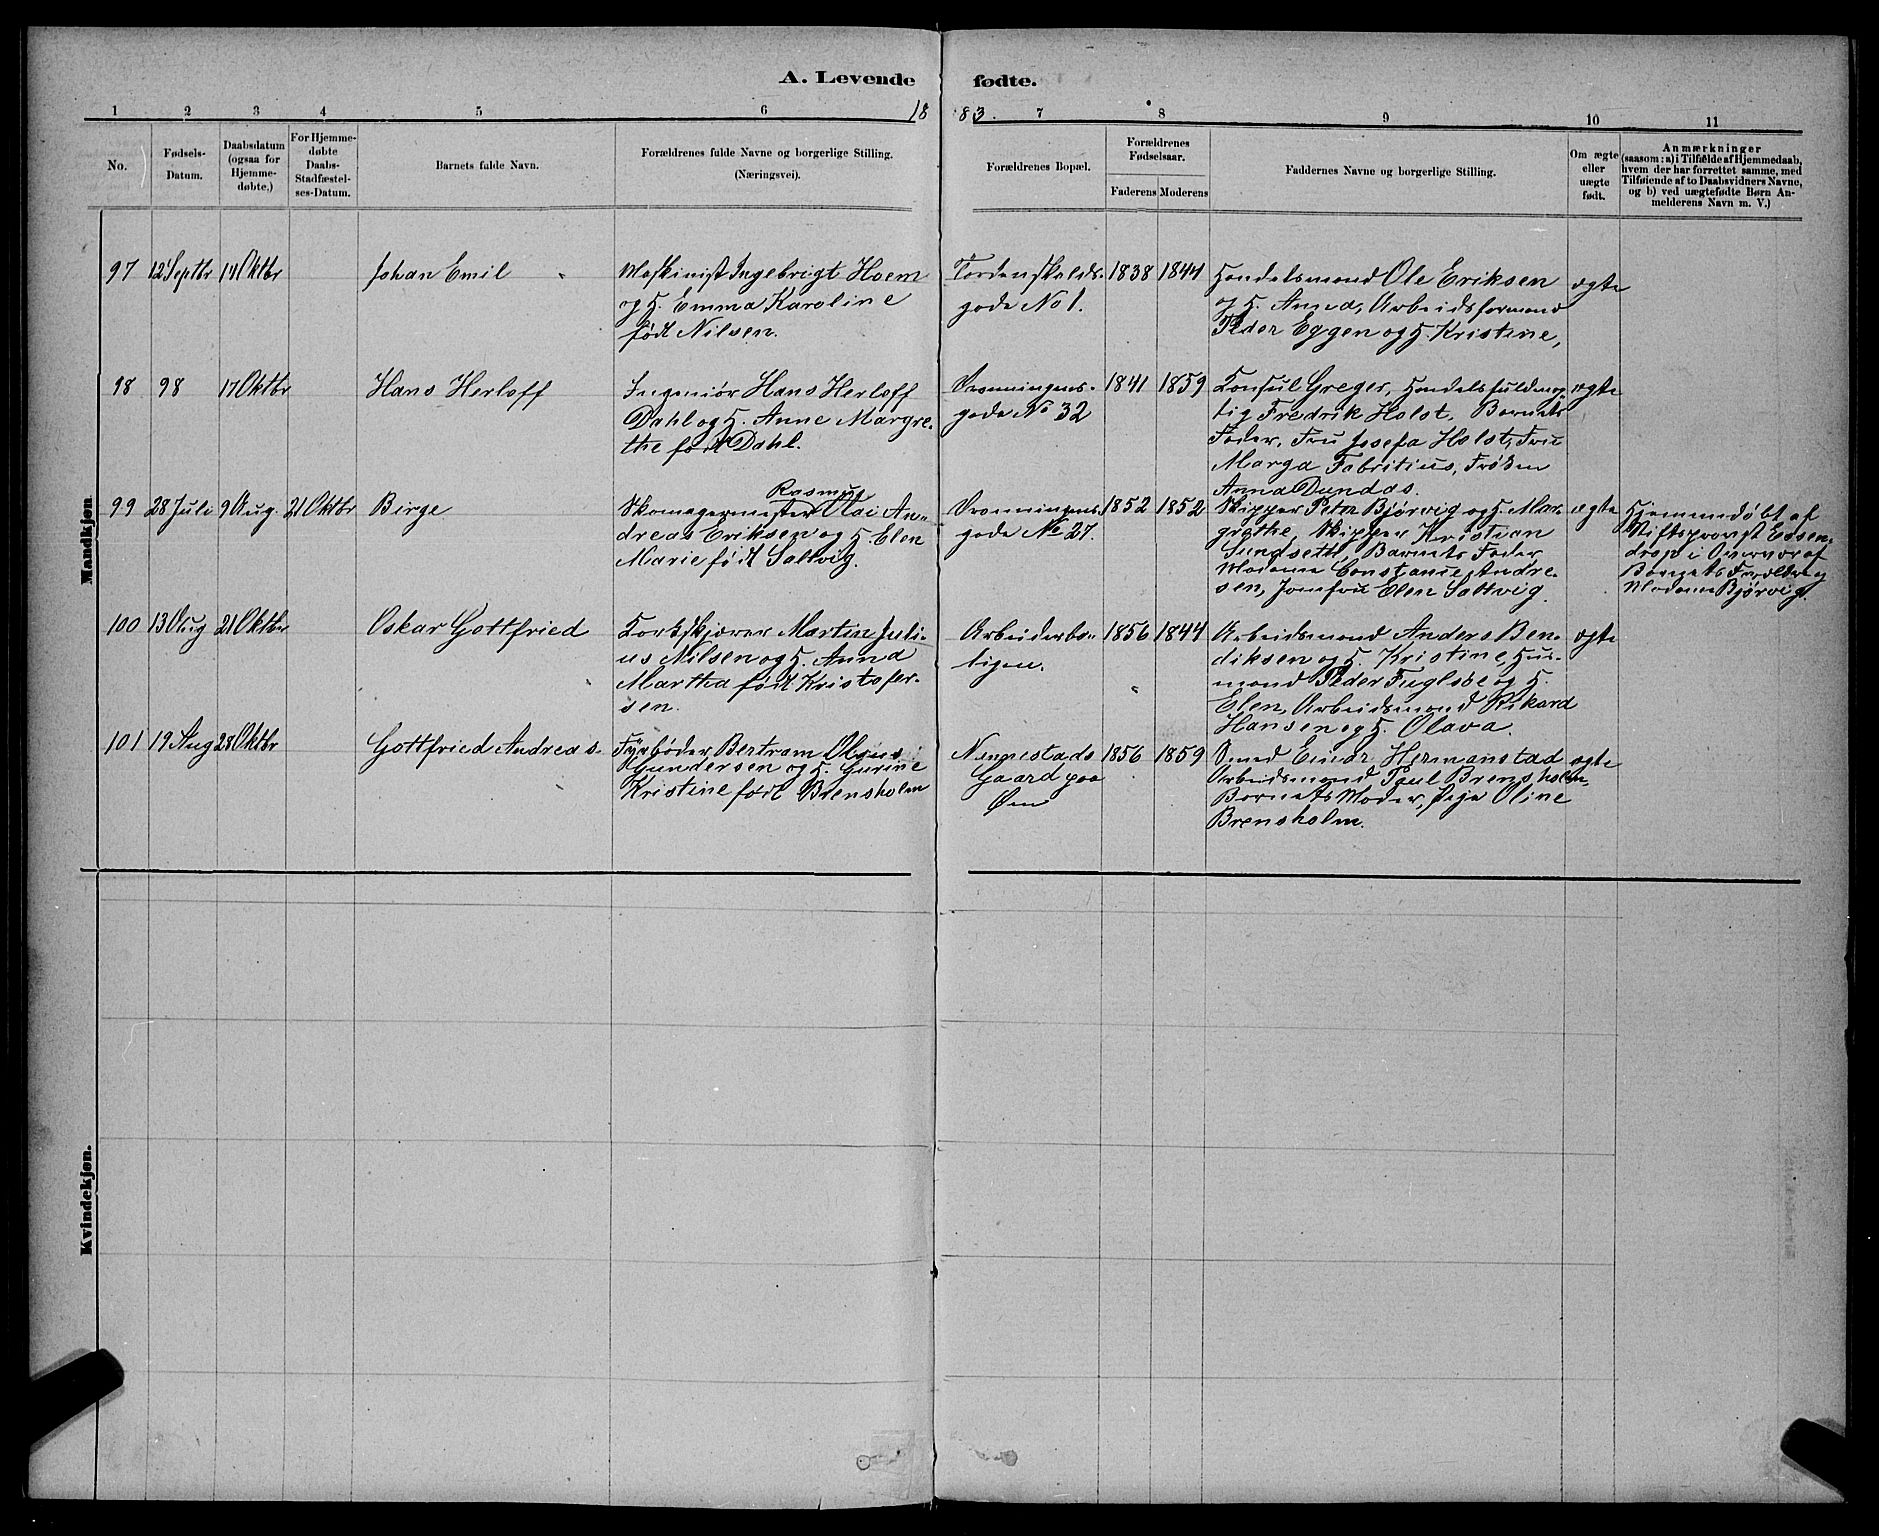 A. Levende fødte.
1 2 3 4 5 6 1883. 7 8 9 10 11
No.
Fødsels-
Datum.
Daabsdatum
(ogsaa for
Hjemme-
døbte.)
For Hjemme-
døbte
Daabs-
Stadfæstel-
ses-Datum.
Barnets fulde Navn.
Forældrenes fulde Navne og borgerlige Stilling.
(Næringsvei).
Forældrenes Bopæl.
Forældrenes
Fødselsaar.
Faderens Moderens
Faddernes Navne og borgerlige Stilling.
Om ægte
eller
uægte
født.
Anmærkninger
(saasom: a) i Tilfælde af Hjemmedaab,
hvem der har forrettet samme, med
Tilføiende af to Daabsvidners Navne,
og b) ved uægtefødte Børn An-
melderens Navn m. V.)
Mandkjøn
97 12 Septbr 14 Oktbr Johan Emil
Maskinist Ingebrigt Hoem
og H. Emma Karoline
født Nilsen.
Tordenskolds-
gade No 1.
1838 1844
Handelsmand Ole Eriksen
og H. Anna, Arbeidsformand
Peder Eggen og H. Kristine,
ægte
98 98 17 Oktbr Hans Herloff
Ingeniør Hans Herloff
Dahl og H. Anne Margre-
the født Dahl.
Dronningens-
gade No 32
1841 1859
Konsul Greger, Handelsfuldmæg-
tig Fredrik Holst, Barnets
Fader, Fru Josefa Holst, Fru
Marga Fabritius, Frøken
Anna Dundas.
ægte
99 28 Juli 9 Aug. 21 Oktbr Birge
Rasmus
Skomagermester Olai An-
dreas Eriksen og H. Elen
Marie født Saltvig.
Dronningens
gade No 27.
1852 1852
Skipper Peter Bjørvig og H. Mar-
grethe, Skipper Kristian
Sundseth, Barnets Fader
Madame Constance Andre-
sen, Jomfru Elen Saltvig.
ægte
Hjemmedøbt af
Stiftsprovst Essen-
drop i Overvær af
Barnets Forældre og
Madame Bjørvig.
100 13 Aug 21 Oktbr Oskar Gottfried
Korkskjærer Martin Juli-
us Nilsen og H. Anna
Martha født Kristofer-
sen.
Arbeiderbo-
ligen.
1856 1844
Arbeidsmand Anders Ben-
diksen og H. Kristine, Hus-
mand Peder Fuglsbe og H.
Elen, Arbeidsmand Rikard
Hansen og H. Olava.
ægte
101 19 Aug 28 Oktbr Gottfried Andreas.
Fyrbøder Bertram Olaus
Gundersen og H. Gurine
Kristine født Brensholm
Nennestads
Gaard paa
Øen
1856 1859
Smed Einar Hermanstad
Arbeidsmand Paul Brensholm
Barnets Moder, Pige Oline
Brensholm.
ægte
Kvindekjøn.